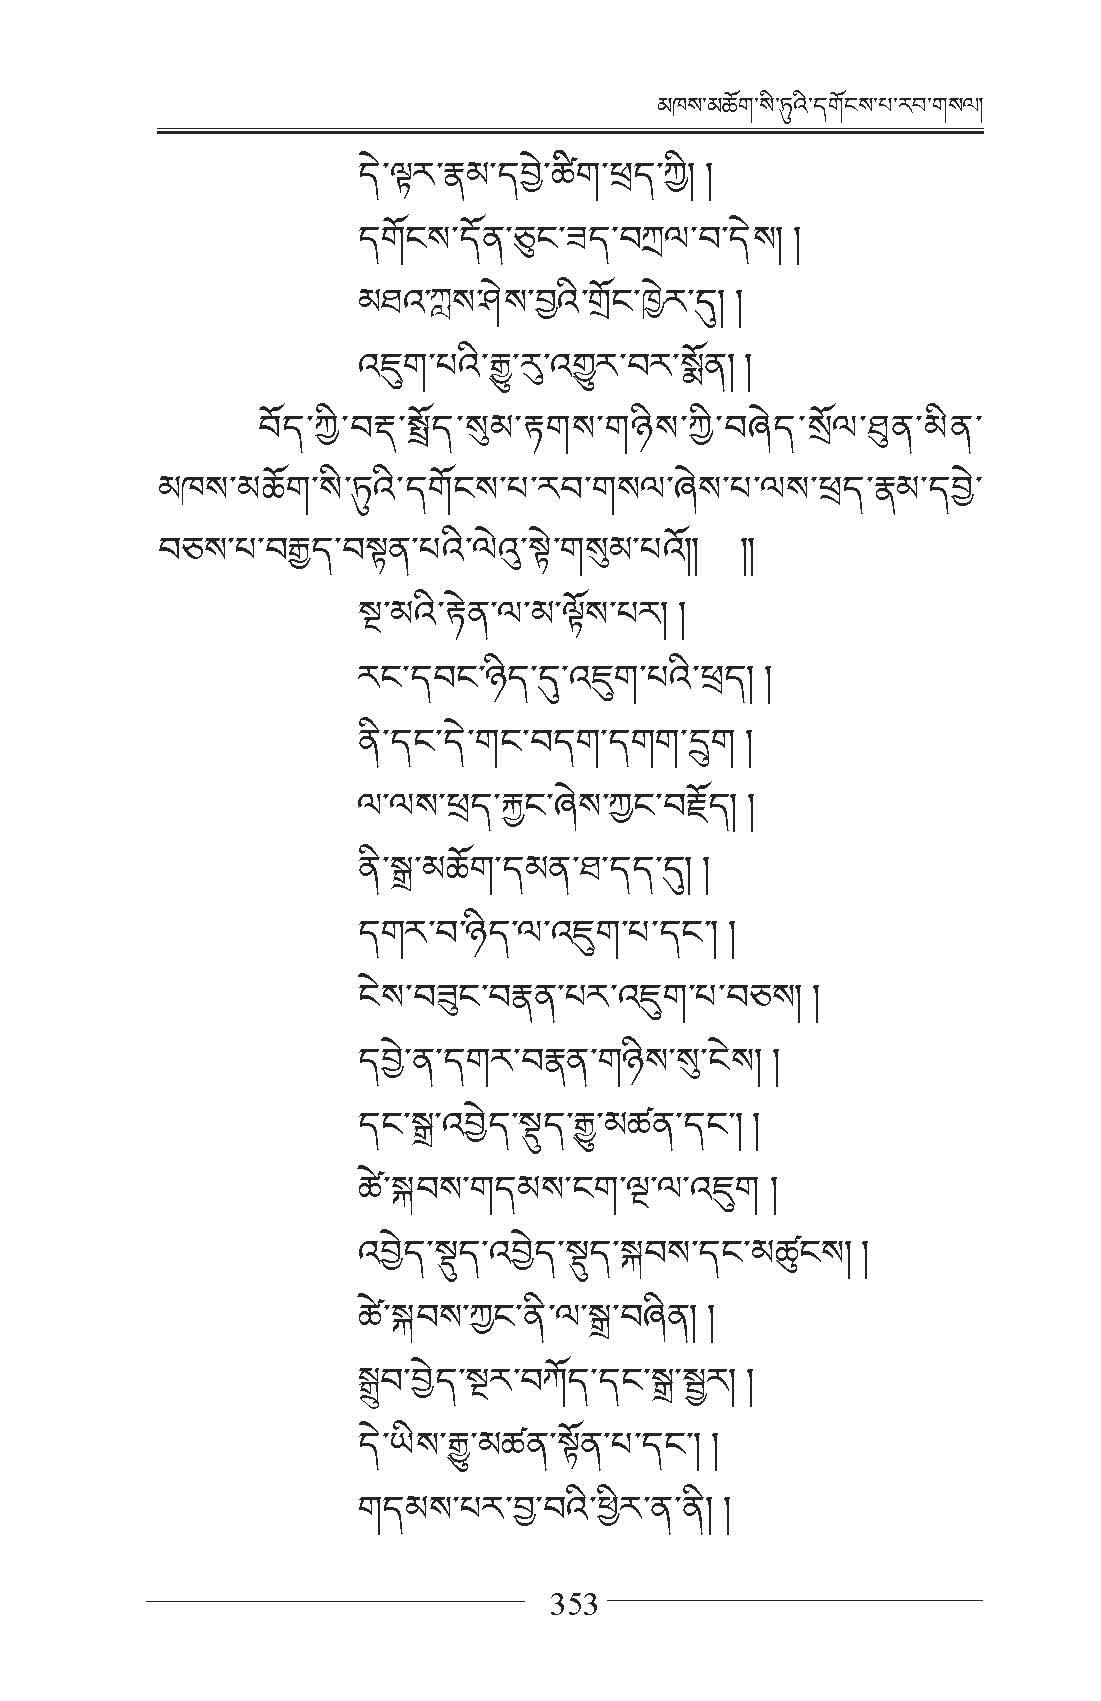 མཁས་མཆོག་སི་ཏུའི་དགོངས་པ་རབ་གསལ།
དེ་ལྟར་རྣམ་དབྱེ་ཚིག་ཕྲད་ཀྱི། །
དགོངས་དོན་ཅུང་ཟད་བཀྲལ་བ་དེས། །
མཐའ་ཀླས་ཤེས་བྱའི་གྲོང་ཁྱེར་དུ། །
འཇུག་པའི་རྒྱུ་རུ་འགྱུར་བར་སྨོན། །
བོད་ཀྱི་བརྡ་སྤྲོད་སུམ་རྟགས་གཉིས་ཀྱི་བཞེད་སྲོལ་ཐུན་མིན་
མཁས་མཆོག་སི་ཏུའི་དགོངས་པ་རབ་གསལ་ཞེས་པ་ལས་ཕྲད་རྣམ་དབྱེ་
བཅས་པ་བརྒྱད་བསྟན་པའི་ལེའུ་སྟེ་གསུམ་པའོ།། །།
སྔ་མའི་རྟེན་ལ་མ་ལྟོས་པར། །
རང་དབང་ཉིད་དུ་འཇུག་པའི་ཕྲད། །
ནི་དང་དེ་གང་བདག་དགག་དྲུག །
ལ་ལས་ཕྲད་རྐྱང་ཞེས་ཀྱང་བརྗོད། །
ནི་སྒྲ་མཆོག་དམན་ཐ་དད་དུ། །
དགར་བ་ཉིད་ལ་འཇུག་པ་དང༌། །
ངེས་བཟུང་བརྣན་པར་འཇུག་པ་བཅས། །
དབྱེ་ན་དགར་བརྣན་གཉིས་སུ་ངེས། །
དང་སྒྲ་འབྱེད་སྡུད་རྒྱུ་མཚན་དང༌། །
ཚེ་སྐབས་གདམས་ངག་ལྔ་ལ་འཇུག །
འབྱེད་སྡུད་འབྱེད་སྡུད་སྐབས་དང་མཚུངས། །
ཚེ་སྐབས་ཀྱང་ནི་ལ་སྒྲ་བཞིན། །
སྒྲུབ་བྱེད་སྔར་བཀོད་དང་སྒྲ་སྦྱར། །
དེ་ཡིས་རྒྱུ་མཚན་སྟོན་པ་དང༌། །
གདམས་པར་བྱ་བའི་ཕྱིར་ན་ནི། །
353